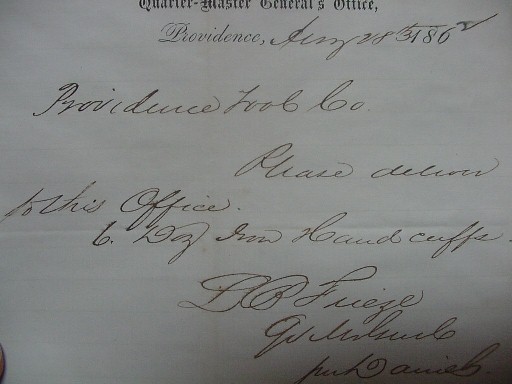 Quarter-Master General's Office,
Providence, Aug 28th 1862
Providence Tool Co.
Please deliver
to this Office.
6. Doz Iron Hand cuffs.
L B Frieze
Qr Mr Genl
per Daniels